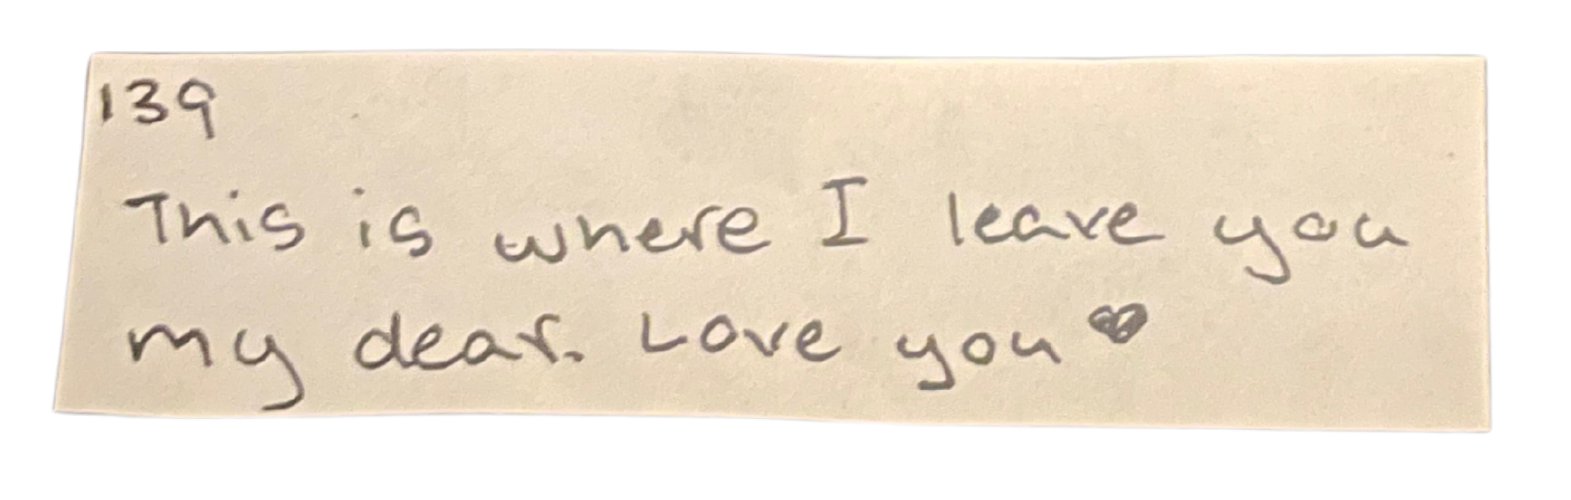 139
This is where I leave you
my dear. Love you ♥